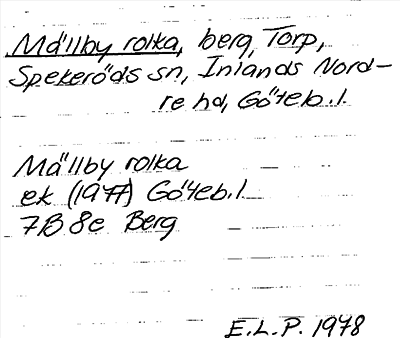 Mällby rolka, berg, Torp,
Spekeröds sn, Inlands Nord-
re hd, Göteb. l.
Mällby rolka
ek (1977) Göteb. l
7B 8e Berg
E.L.P. 1978